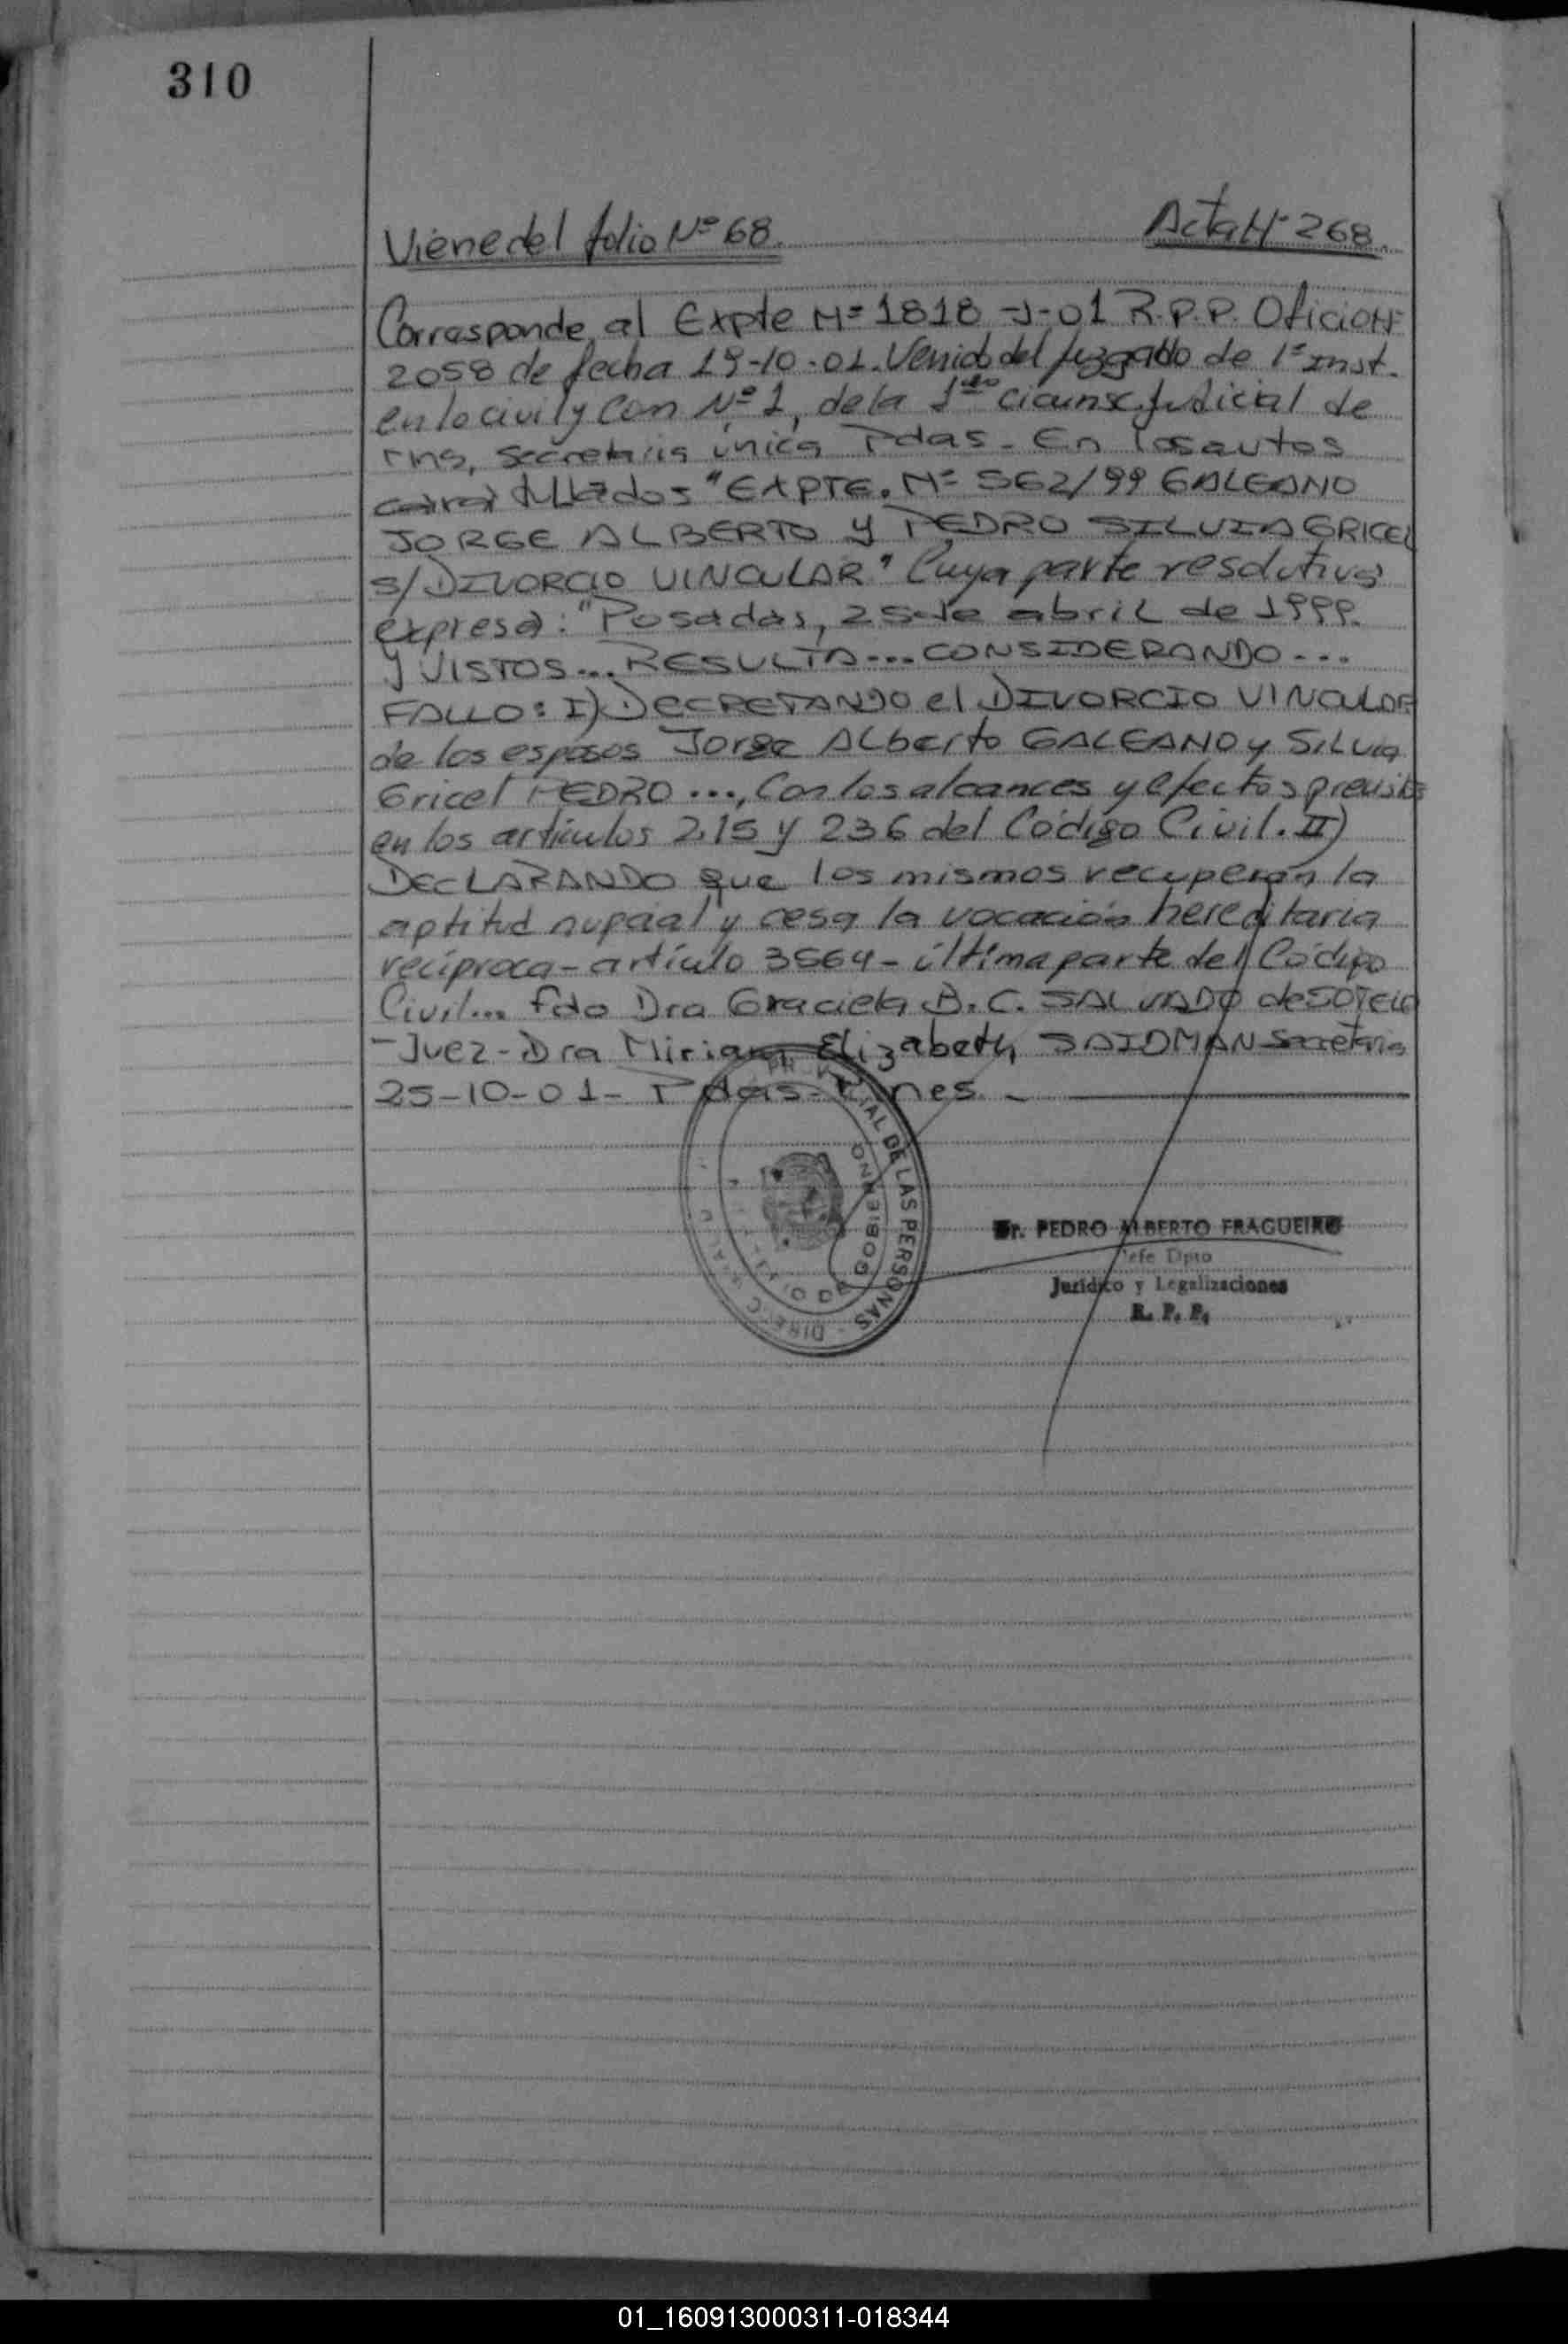 310
Viene del folio Nº 68. Acta Nº 268.
Corresponde al Expte Nº 1818 -J-01 R.P.P. Oficio Nº
2058 de fecha 19-10-01. Venido del Juzgado de 1º Inst.
en lo civil y Com Nº 1, de la 1era circunsc. Judicial de
Mns, Secretaria única Pdas. En los autos
caratulados "EXPTE. Nº 562/99 GALEANO
JORGE ALBERTO y PEDRO SILVIA GRICEL
S/DIVORCIO VINCULAR" Cuya parte resolutiva
expresa: "Posadas, 25 de abril de 1999.
Y VISTOS... RESULTA... CONSIDERANDO...
FALLO: I) DECRETANDO el DIVORCIO VINCULAR
de los esposos Jorge Alberto GALEANO y Silvia
Gricel PEDRO ..., Con los alcances y efectos previstos
en los artículos 215 y 236 del Código Civil. II)
DECLARANDO que los mismos recuperan la
aptitud nupcial y cesa la vocación hereditaria
recíproca - artículo 3564 - última parte del Código
Civil... fdo Dra Graciela B. C. SALVADO de SOTELO
- Juez - Dra Miriam Elizabeth SAIDMAN Secretaria
25-10-01- Pdas - Mnes. -
DE LAS PERSONAS - DIREC
GOBIERNO
Dr. PEDRO ALBERTO FRAGUEIRO
Jefe Dpto
Jurídico y Legalizaciones
R. P. P.
01_160913000311-018344